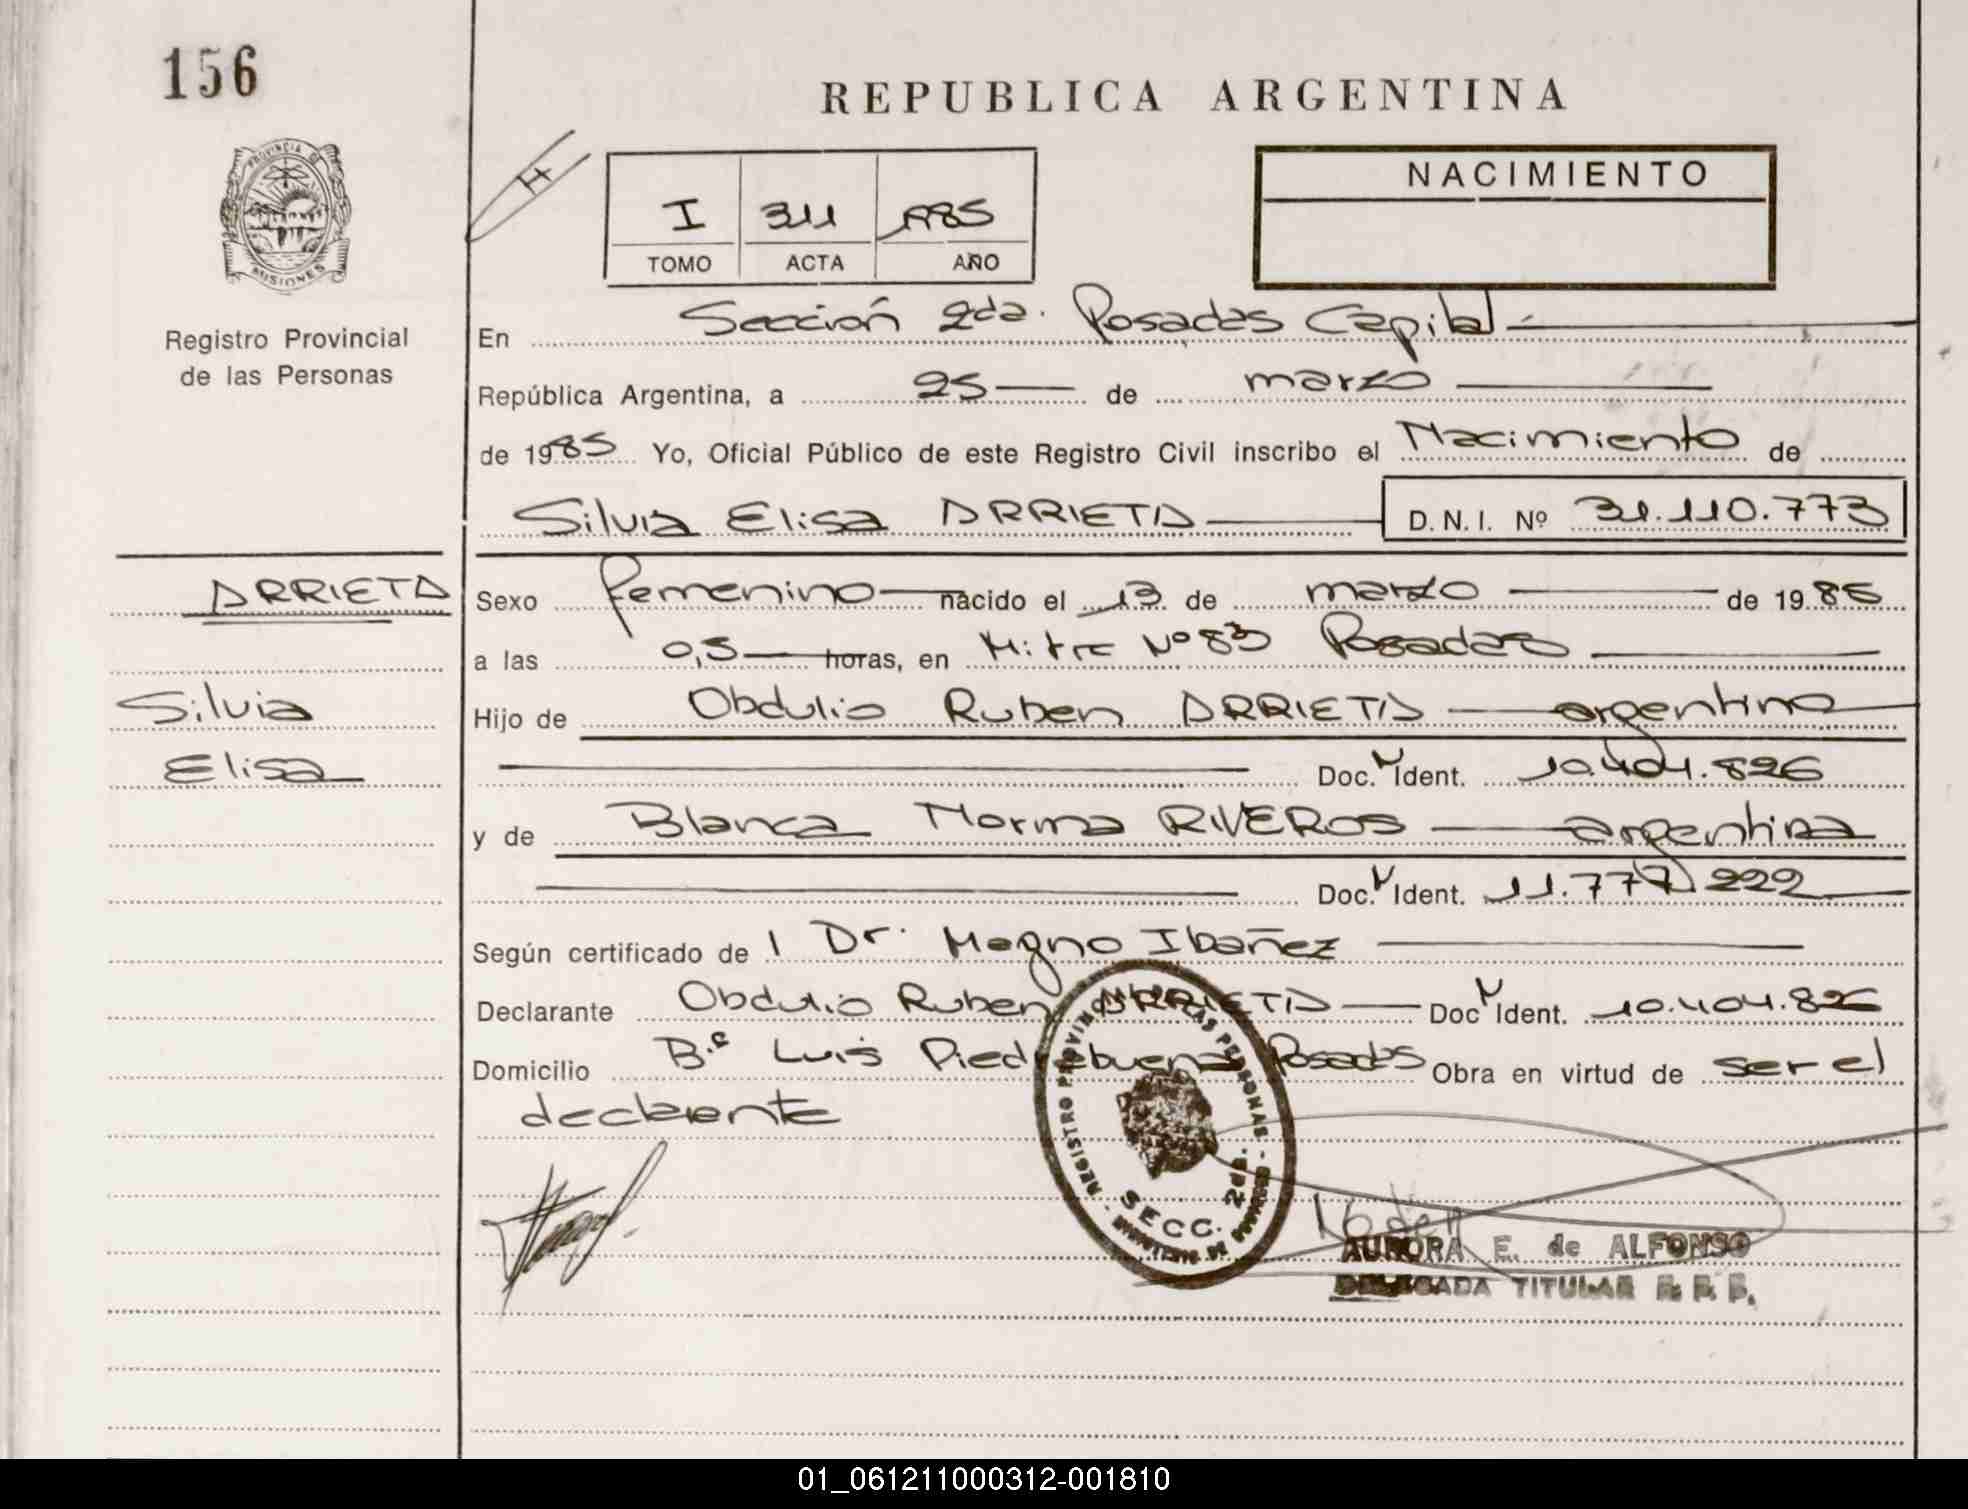 156
REPUBLICA ARGENTINA
PROVINCIA DE
MISIONES
Registro Provincial
de las Personas
H
I 311 1985
TOMO ACTA AÑO
NACIMIENTO
En Sección 2da. Posadas Capital
República Argentina, a 25 de marzo
de 1985 Yo, Oficial Público de este Registro Civil inscribo el Nacimiento de
Silvia Elisa ARRIETA D. N. I. Nº 31.110.773
ARRIETA
Silvia
Elisa
Sexo femenino nacido el 13 de marzo de 1985
a las 0,5 horas, en Mitre Nº 83 Posadas
Hijo de Obdulio Ruben ARRIETA argentino
Doc. M Ident. 10.404.826
y de Blanca Norma RIVEROS argentina
Doc. Ident. 11.777.222
Según certificado de 1 Dr. Magno Ibañez
Declarante Obdulio Ruben ARRIETA Doc M Ident. 10.404.826
Domicilio B.º Luis Piedrabuena Posadas Obra en virtud de ser el
declarante
REGISTRO PROVINCIAL DE LAS PERSONAS
SECC. 2da.
AURORA E. de ALFONSO
DELEGADA TITULAR R. P. P.
01_061211000312-001810